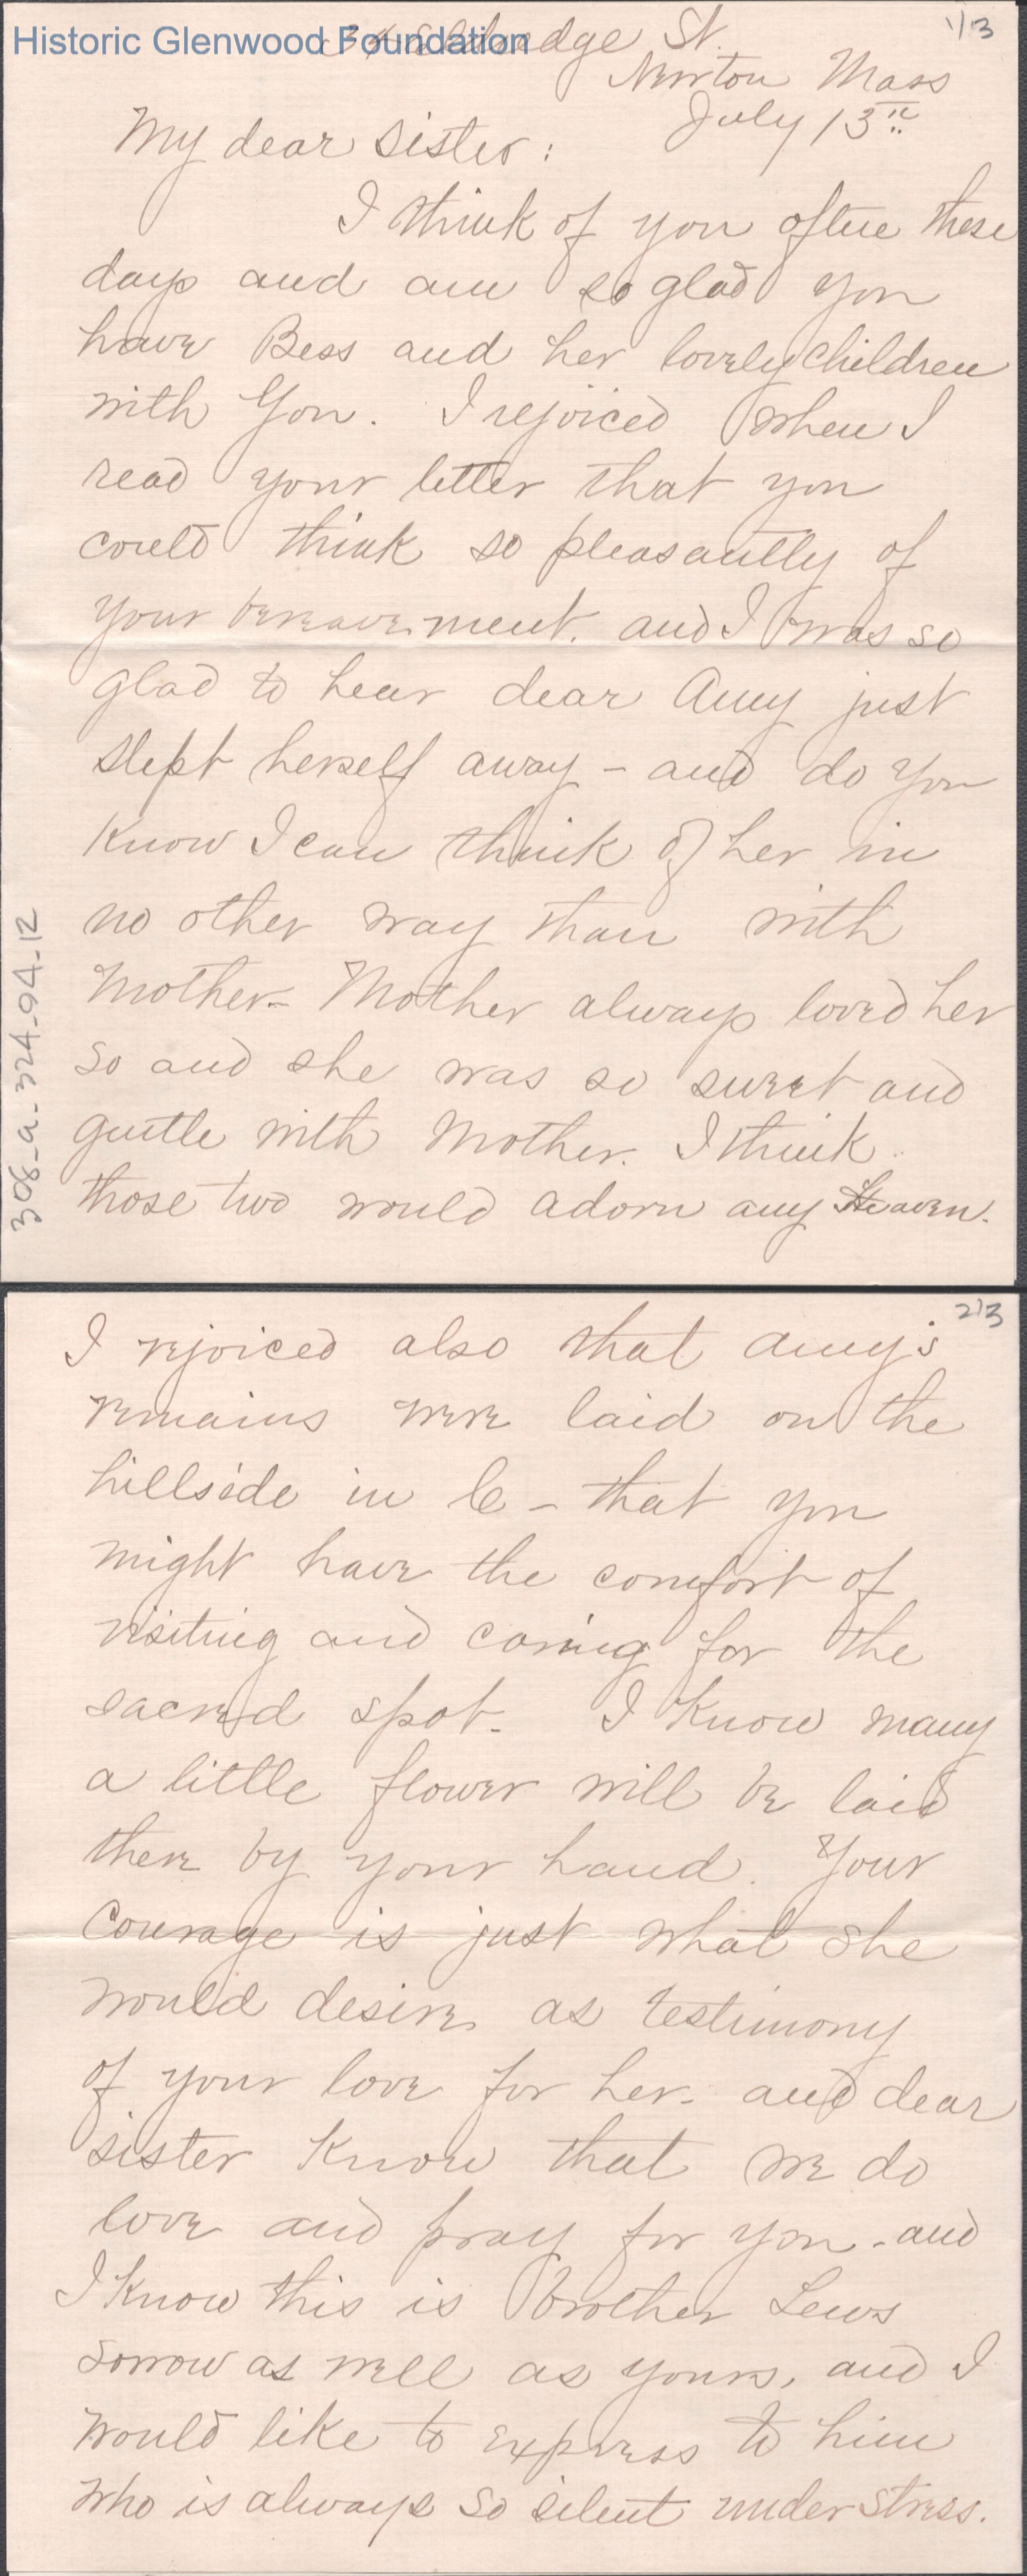 Historic Glenwood Foundation
Eldredge St.
1/3
Newton Mass
July 13th
My dear sister:
I think of you often these
days and am so glad you
have Bess and her lovely children
with You. I rejoiced when I
read your letter that you
could think so pleasantly of
your bereavement. and I was so
glad to hear dear Amy just
slept herself away - and do you
know I can think of her in
no other way than with
Mother - Mother always loved her
so and she was so sweet and
gentle with Mother. I think
those two would adorn any Heaven.
308-a-324-94-12
2/3
I rejoiced also that Amy's
remains were laid on the
hillside in C - that you
might have the comfort of
visiting and caring for the
sacred spot. I know many
a little flower will be laid
there by your hand. Your
courage is just what she
would desire as testimony
of your love for her - and dear
sister know that we do
love and pray for you - and
I know this is brother Lews
sorrow as well as yours, and I
would like to express to him
who is always so silent under stress.